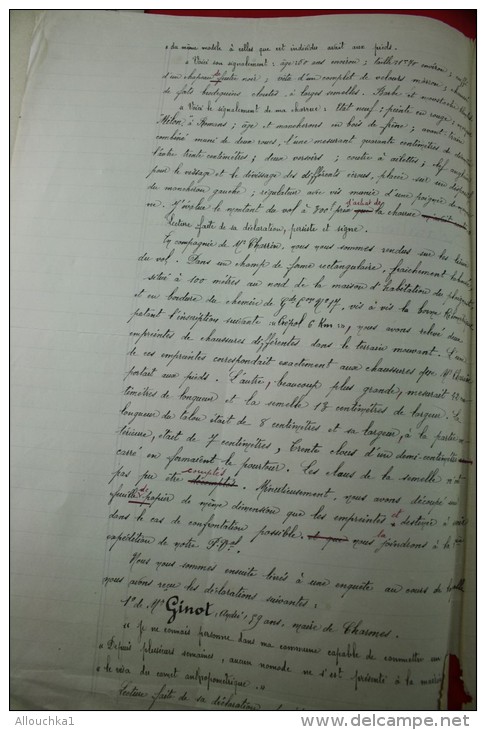 « du même modèle à celles que cet individu avait aux pieds.
« Voici son signalement : âge 50 ans environ ; taille 1m 70 environ ;
d'un chapeau de feutre noir ; vêtu d'un complet de velours marron ;
de fortes brodequins cloutés, à larges semelles. Barbe et moustache
« Voici le signalement de ma charrue : Etat neuf : peinte en rouge ;
" à Romans ; âge et mancherons en bois de frêne ; avant-train
combiné muni de deux roues, l'une mesurant quarante centimètres de
l'autre trente centimètres ; deux versoirs ; coutre à ; clef anglaise
pour le vissage et le dévissage des différents écrous, placée sur un
du mancheron gauche ; régulateur avec vis munie d'une poignée de
re. J'évalue le montant du vol à 300f prix l'achat de la charrue
Lecture faite de sa déclaration, persiste et signe.
En compagnie de Mr Charrin, nous nous sommes rendus sur les lieux
du vol. Dans un champ de forme rectangulaire, fraîchement labouré
situé à 100 mètres au nord de la maison d'habitation du plaignant
et en bordure du chemin de Gde Con N° 17, vis à vis la borne
patent l'inscription suivante « Crépol 6 Km », nous avons relevé deux
empreintes de chaussures différentes dans le terrain mouvant. L'une
de ces empreintes correspondait exactement aux chaussures que Mr Charrin
portait aux pieds. L'autre, beaucoup plus grande, mesurait 32 cen
timètres de longueur et la semelle 13 centimètres de largeur. La
longueur du talon était de 8 centimètres et sa largeur, à la partie
térieure, était de 7 centimètres, Trente clous d'un demi-centimètre
carré en formaient le pourtour. Les clous de la semelle n'ont
pas pu être comptés. Minutieusement, nous avons découpé une
feuille de papier de même dimension que les empreintes et destinée à servir
dans le cas de confrontation possible. nous la joindrons à la 1ère
expédition de notre P.Val.
Nous nous sommes ensuite livrés à une enquête au cours de laquelle
nous avons reçu les déclarations suivantes.
1° de Mr Ginot, André, 59 ans, maire de Charmes.
« Je ne connais personne dans ma commune capable de commettre un
« Depuis plusieurs semaines, aucun nomade ne s'est présenté à la mairie
« le visa du carnet anthropométrique. »
Lecture faite de sa déclaration
Allouchka1
www.delcampe.net